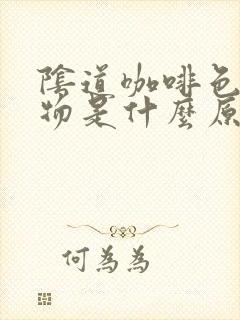 陰道咖啡色
物是什麼原
何為為